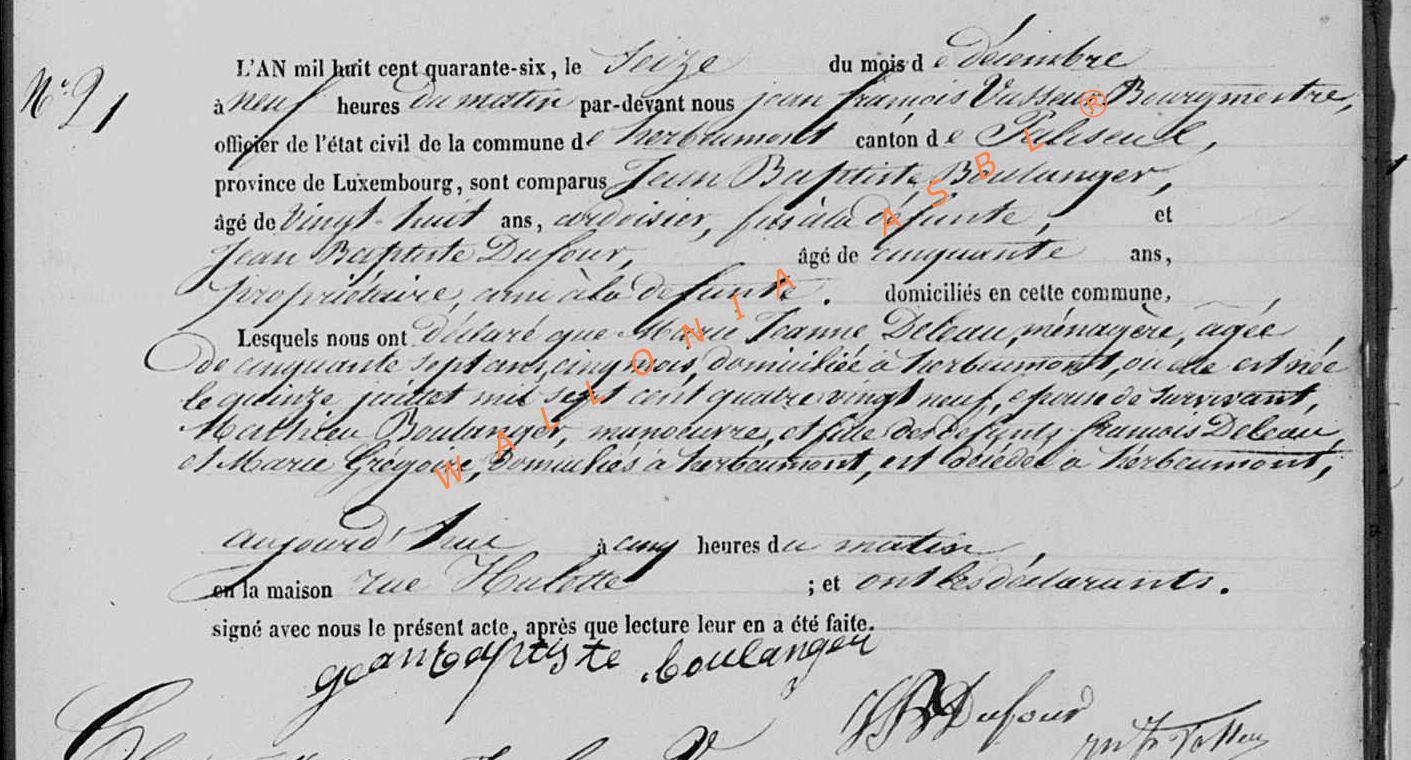 N.° 21
L'AN mil huit cent quarante-six, le Seize du mois de décembre
à neuf heures du matin par-devant nous jean françois Vasseur Bourgmestre,
officier de l'état civil de la commune de herbeumont canton de Paliseul,
province de Luxembourg, sont comparus Jean Baptiste Boulanger,
âgé de Vingt-huit ans, ardoisier, fils à la défunte, et
Jean Baptiste Dufour, âgé de cinquante ans,
propriétaire, ami à la défunte. domiciliés en cette commune,
Lesquels nous ont déclaré que Marie Jeanne Deleau, ménagère, agée
de cinquante sept ans, cinq mois, domiciliée à herbeumont, ou elle est née
le quinze juillet mil sept cent quatre vingt neuf, epouse de survivant,
Mathieu Boulanger, manoeuvre, et fille des defunts françois Deleau,
et Marie Grégoire, domiciliés à herbeumont, est décédée à herbeumont,
aujourd'hui à cinq heures du matin,
en la maison rue Hulotte ; et ont les déclarants.
signé avec nous le présent acte, après que lecture leur en a été faite.
geanbaptiste boulanger
JB Dufour
WALLONIA ASBL ®